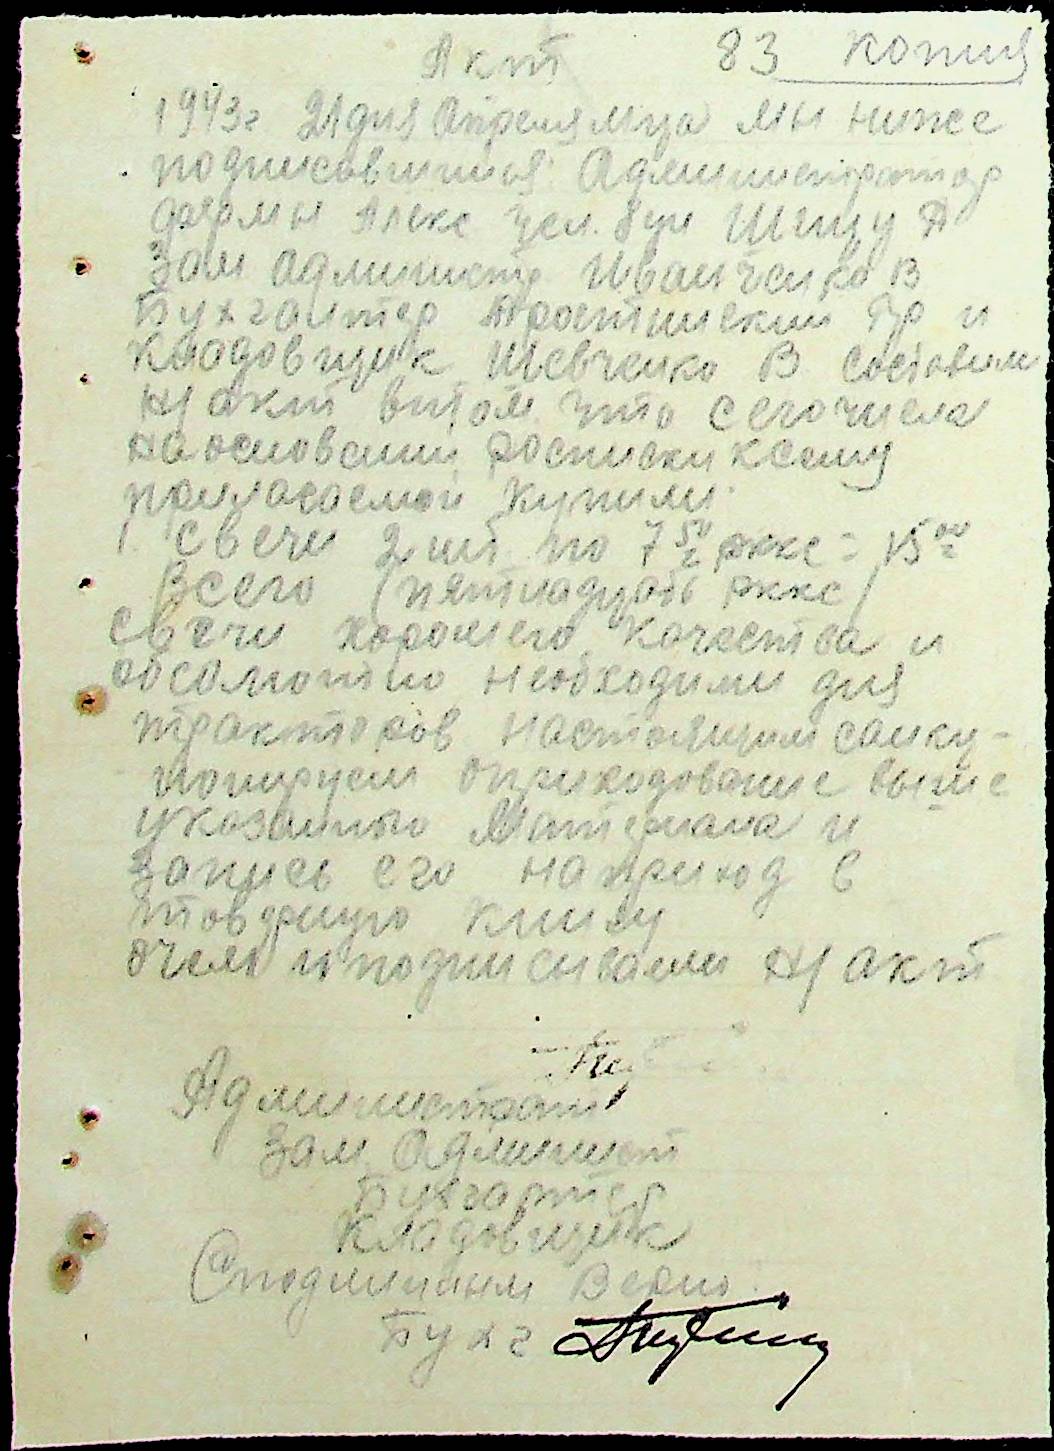 Акт 83 копия
1943г 21 дня Апреля м-ца мы ниже
подписавшиися Администратор
фермы Алекс Шпиц А
Зам админист Иванченко В
Бухгалтер Гр и
Кладовщик Шевченко В составили
н/акт в том что сего числа
на основании росписки к сему
прилагаемой купили
1. Свечи 2 шт по 7 50 рккс = 15 00
Всего (пятнадцать рккс)
свечи хорошего качества и
абсолютно необходими для
тракторов настоящим санку-
ионируем оприходование выше
указанного Материала и
запись его на приход в
товарную книгу
о чем и подписиваем н/акт
Администрат
Зам Админист
Бухгалтер
Кладовщик
С подлинным Верно
Бухг